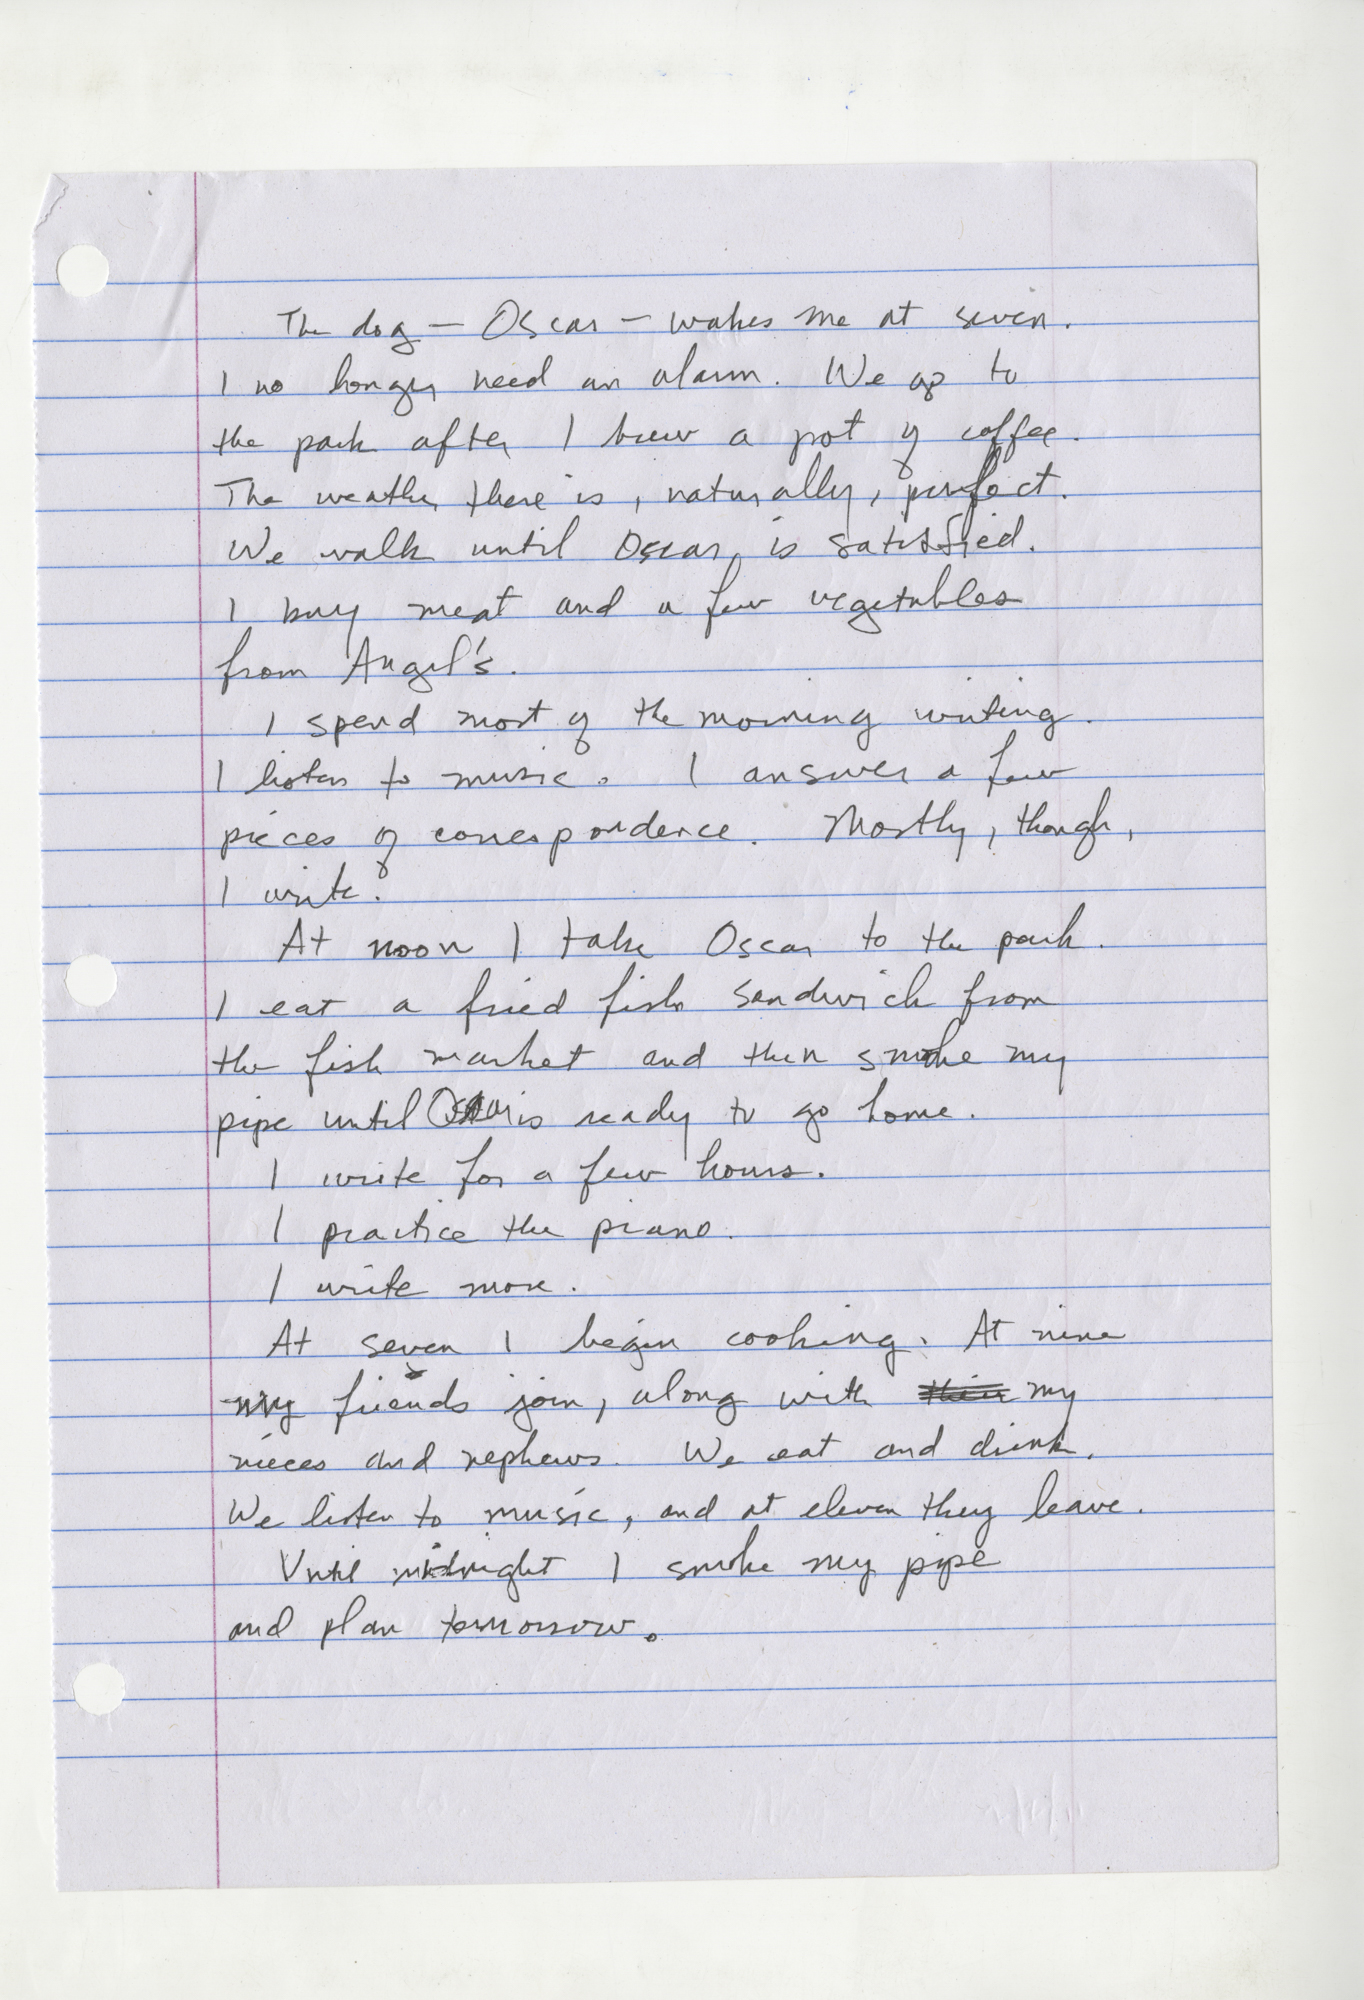 The dog — Oscar — wakes me at seven.
I no longer need an alarm. We go to
the park after I brew a pot of coffee.
The weather there is, naturally, perfect.
We walk until Oscar is satisfied.
I buy meat and a few vegetables
from Angel's.
I spend most of the morning writing.
I listen to music. I answer a few
pieces of correspondence. Mostly, though,
I write.
At noon I take Oscar to the park.
I eat a fried fish sandwich from
the fish market and then smoke my
pipe until Oscar is ready to go home.
I write for a few hours.
I practice the piano.
I write more.
At seven I begin cooking. At nine
my friends join, along with my
nieces and nephews. We eat and drink.
We listen to music, and at eleven they leave.
Until midnight I smoke my pipe
and plan tomorrow.